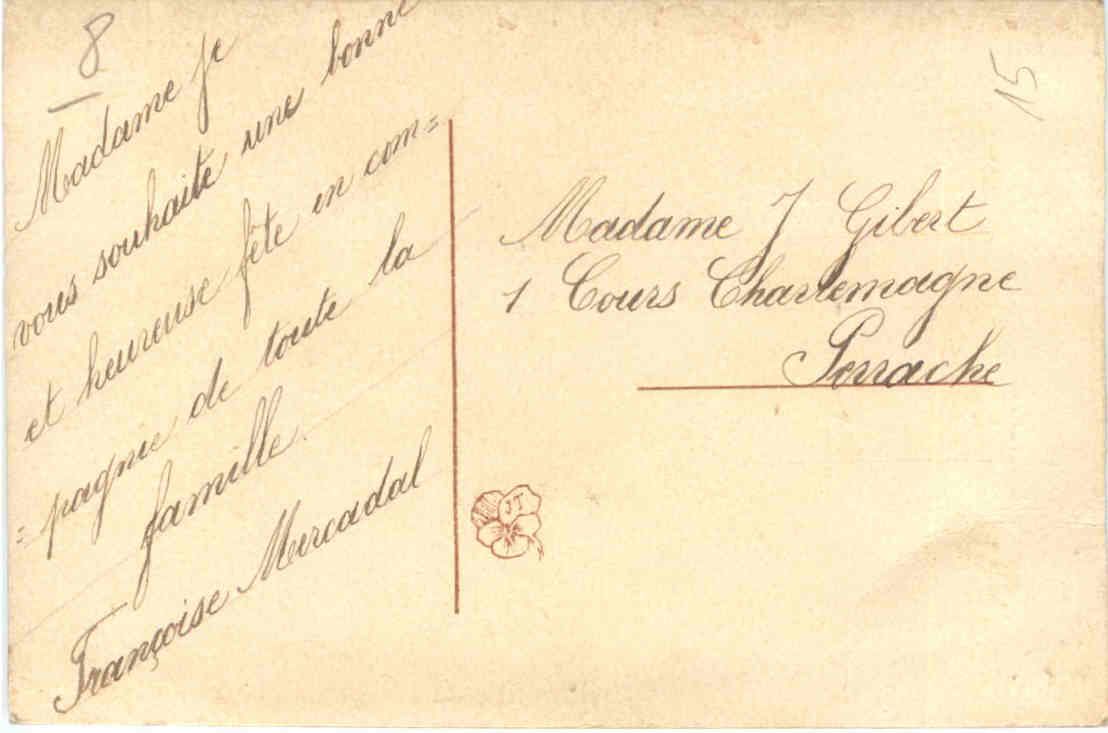 8
Madame je
vous souhaite une bonne
et heureuse fête en com=
=pagnie de toute la
famille.
Françoise Mercadal
15
Madame J Gibert
1 Cours Charlemagne
Perrache
JT